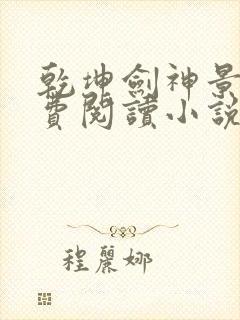 乾坤劍神景
費閱讀小說
程麗娜